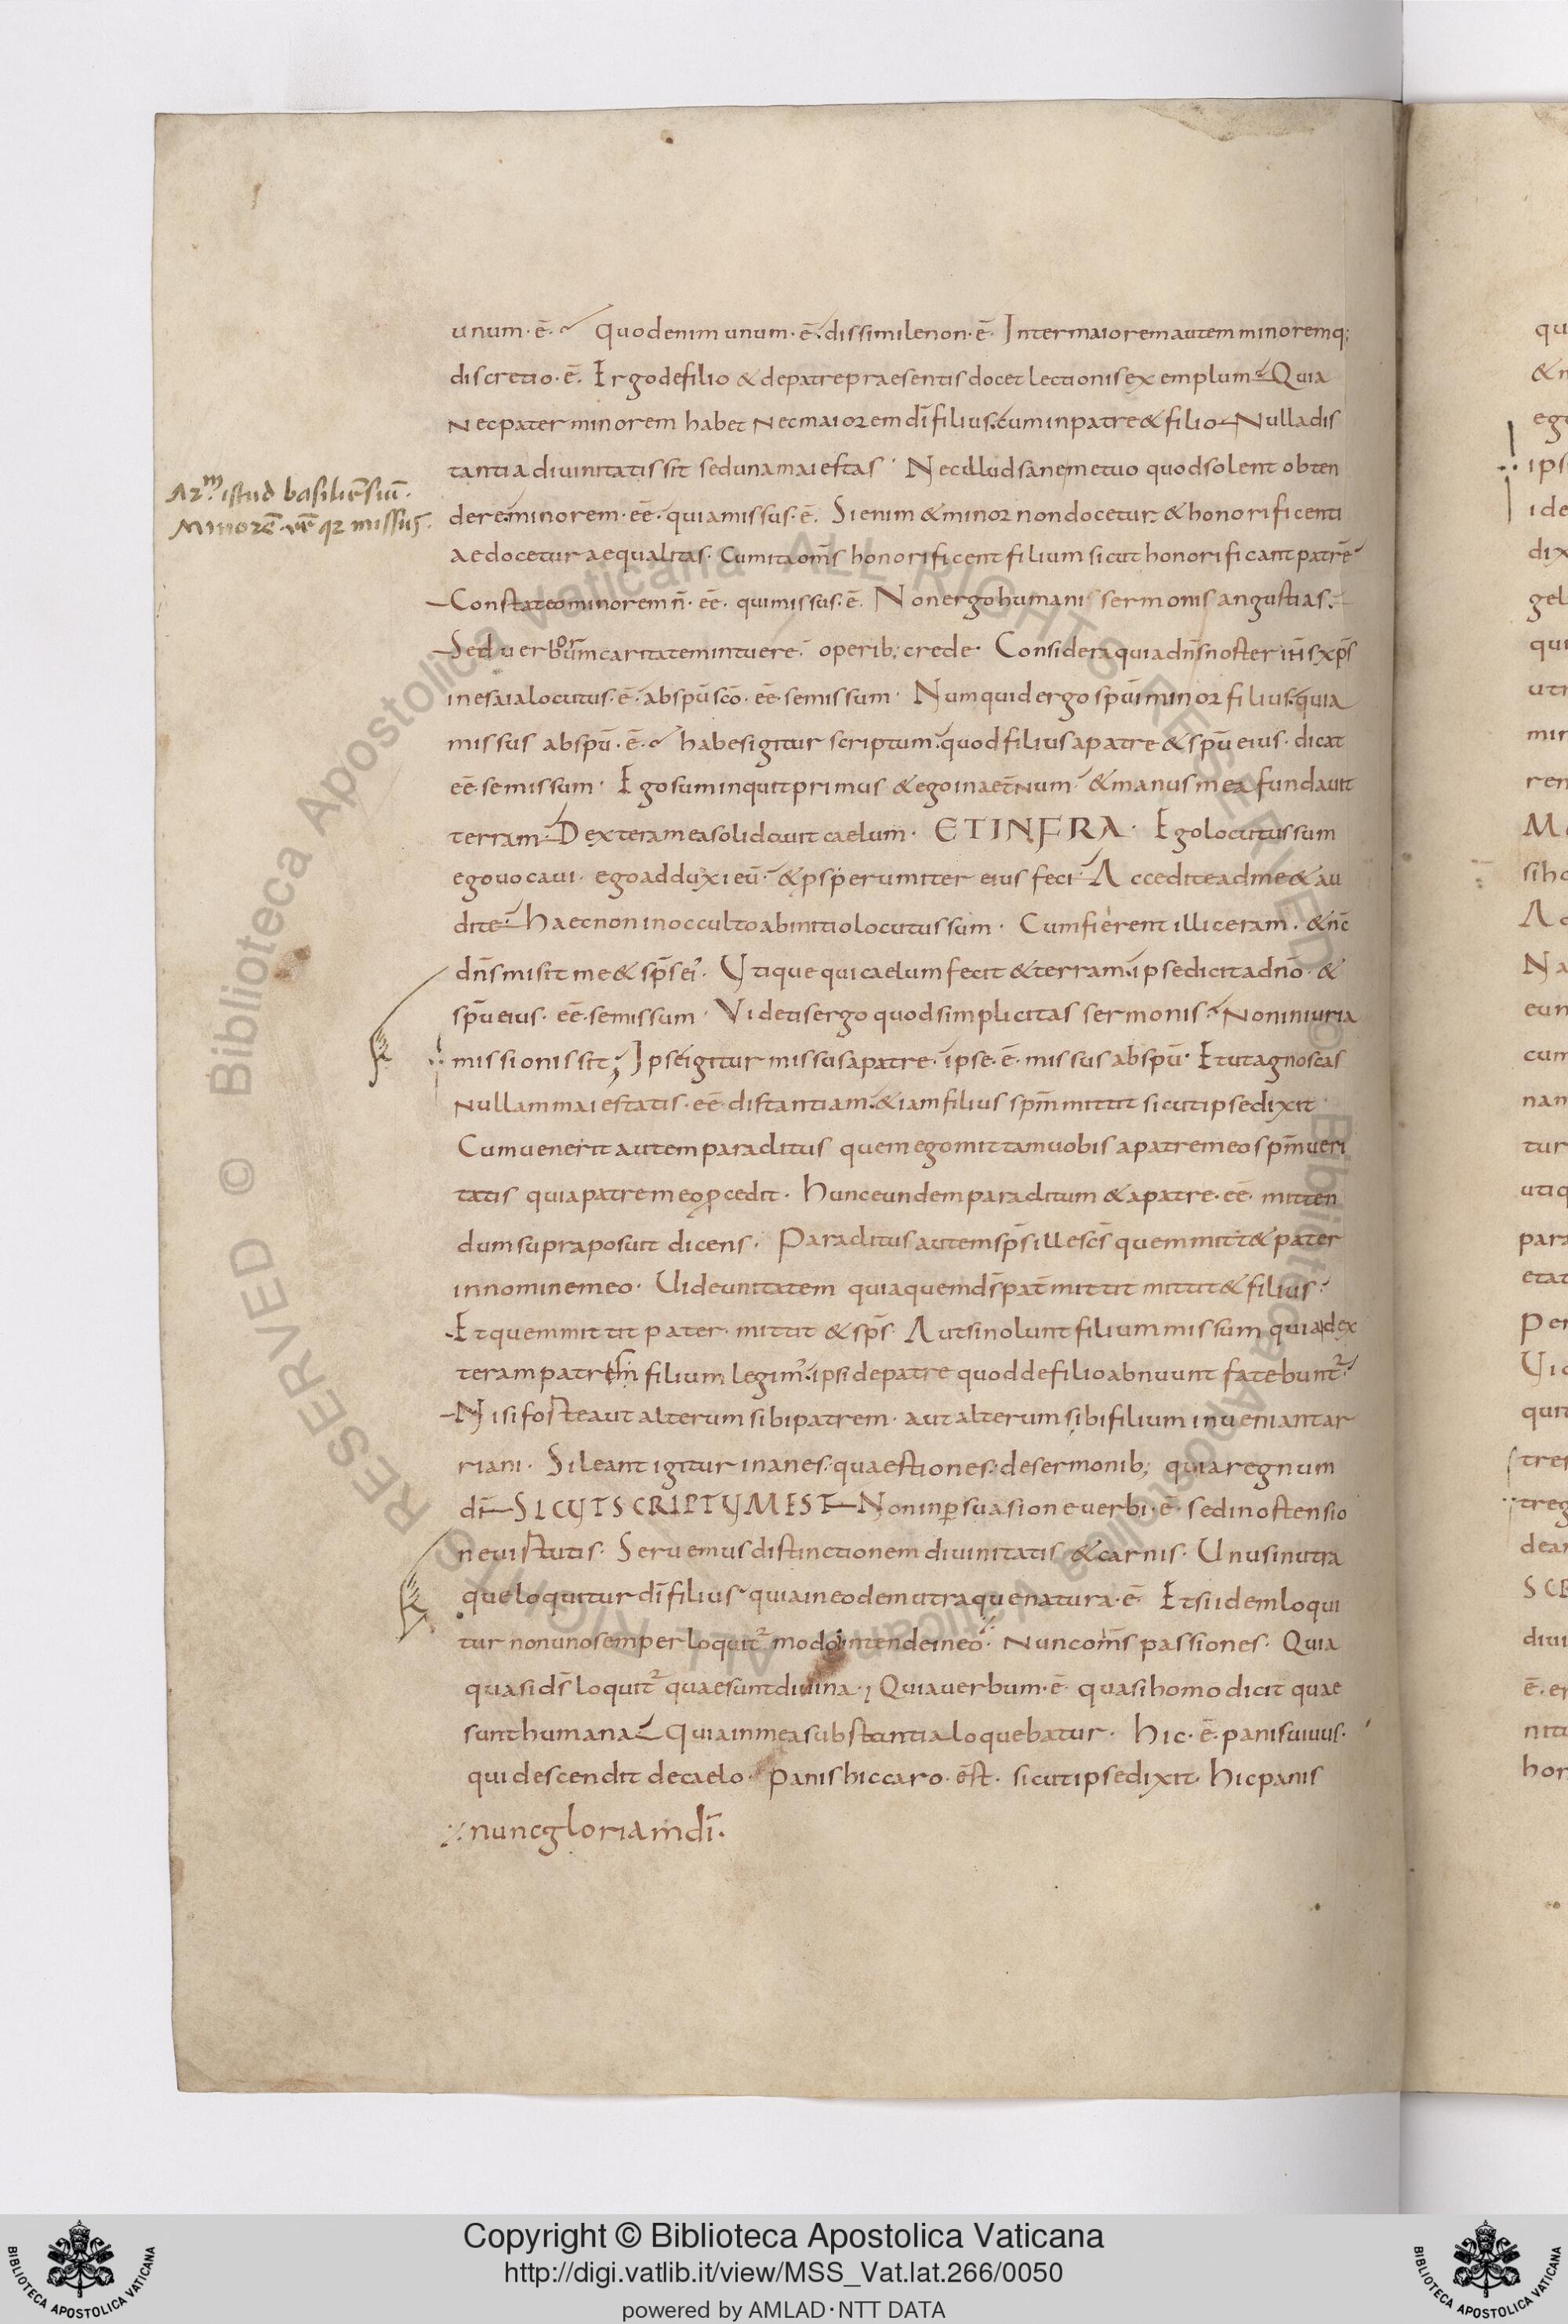 unum·ē· Quodenim unum·ē· dissimilenon·ē· Intermaioremautem minoremq;
discretio·ē· Ergodefilio & depatrepraesentis docet lectionis exemplum Quia
Necpater minorem habet Necmaiorem dī filius· cuminpatre & filio Nulladis
tantia diuinitatis sit sedunamaiestas· Necilludsanemetuo quodsolent obten
dere· minorem·eē· quiamissus·ē· Sienim & minor nondocetur· & honorificenti
aedocetur aequalitas· Cumitaom̄s honorificent filium sicut honorificant patrē
Constateominorem n̄·eē· quimissus·ē· Nonergohumani sermonis angustias·
Sed uerborum caritatem intuere· operib; crede· Consideraquiadn̄snoster ih̄s xp̄s
inesaialocutus·ē· abspū scō·eē·semissum· Numquidergo spūi minor filius· quia
missus abspū·ē· habesigitur scriptum· quodfiliusapatre & spū eius· dicat
eē·semissum· Egosuminquit primus & egoinaet̄num· & manusmea fundauit
terram· Dexterameasolidauit caelum· ETINFRA· Egolocutussum
egouocaui· egoadduxi eū· & psperumiter eius feci· Acceditead me & au
dite· haecnon inoccultoabinitiolocutussum· Cumfierent illiceram· & nc̄
dn̄smisit me & sp̄sei᾽· Utique quicaelum fecit & terram· ipsedicitadn̄o· &
spū eius·eē·semissum· Videtisergo quodsimplicitas sermonis· Noniniuria
missionissit; Ipseigitur missusapatre· ipse·ē· missus abspū· Etutagnoscas
Nullammaiestatis·eē·distantiam· & iamfilius spm̄ mittit sicutipsedixit
Cumuenerit autem paraclitus quem egomittamuobis apatremeo spm̄ ueri
tatis quiapatremeo pcedit· hunceundemparaclitum & apatre·eē· mitten
dumsupraposuit dicens· Paraclitus autemsp̄s illescs̄ quemmittit & pater
innominemeo· Uideunitatem quiaquemds̄ pat̄ mittit mittit & filius·
Et quemmittit pater· mittit & sp̄s· Autsinolunt filiummissum quiadex
teram filium legim᾽· ipsi depatre quoddefilioabnuunt fatebunt²·
Nisi forteaut alterum sibipatrem· aut alterum sibifilium inueniantar
riani· Sileant igitur inanes· quaestiones· desermonib; quiaregnum
dī SICUTSCRIPTUMEST Noninpsuasioneuerbi·ē· sedinostensio
neuirtutis· Seruemusdistinctionem diuinitatis & carnis· Unusinutra
queloquitur dī filius· quiaineodemutraquenatura·ē· Etsiidemloqui
tur nonunosemperloquit² modo intendeineo· Nuncom̄s passiones· Quia
quasids̄ loquit² quaesuntdiuina·; Quiauerbum·ē· quasihomodicit quae
sunthumana Quiainmeasubstantialoquebatur· hic·ē·panisuiuus·
qui descendit decaelo· Panishiccaro·ēst· sicutipsedixit· hicpanis
nuncgloriamdī·
istud basiliēsiū·
Minorē·
qr missus·
Copyright © Biblioteca Apostolica Vaticana
http://digi.vatlib.it/view/MSS_Vat.lat.266/0050
powered by AMLAD·NTT DATA
BIBLIOTECA APOSTOLICA VATICANA
BIBLIOTECA APOSTOLICA VATICANA
Biblioteca Apostolica Vaticana ALL RIGHTS RESERVED ©